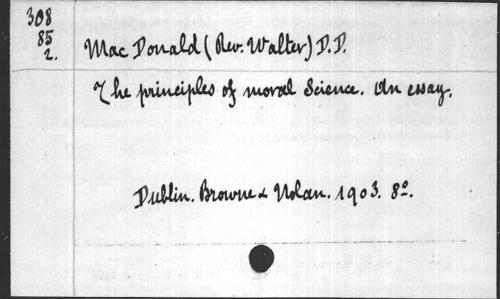 308
85
2.
Mac Donald (Rev. Walter) D.D.
The principles of moral Science. An essay.
Dublin. Browne & Nolan. 1903. 8º.